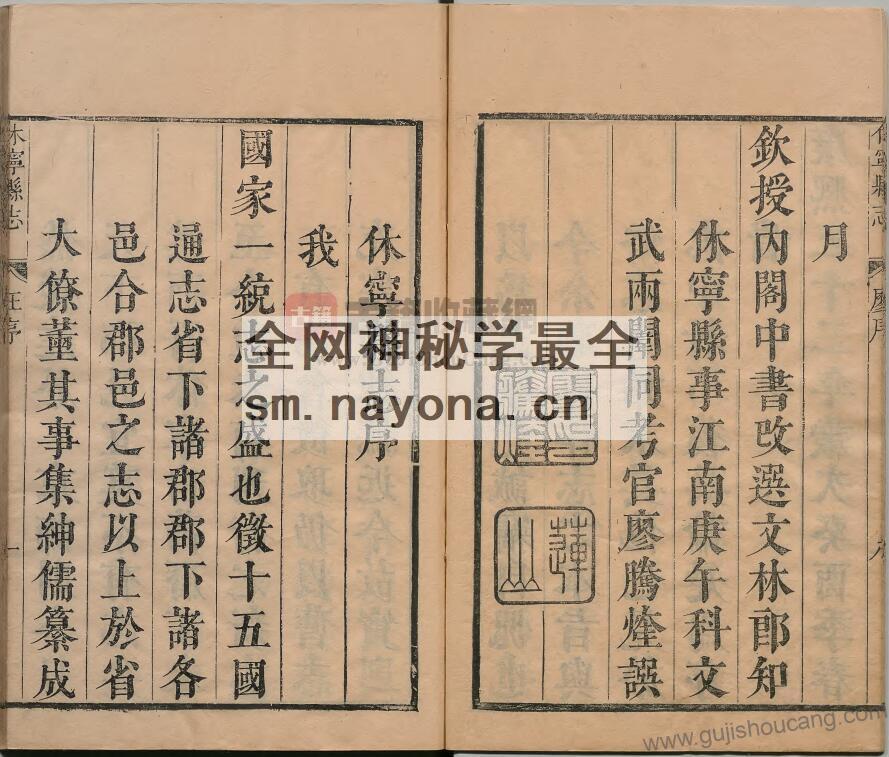 休寧縣志
廖序
月
欽授內閣中書改選文林郎知
休寧縣事江南庚午科文
武兩闈同考官廖騰煃譔
蓮
山
休寧縣志序
我
國家一統志之盛也徵十五國
通志省下諸郡郡下諸各
邑合郡邑之志以上於省
大僚董其事集紳儒纂成
休寧縣志
汪序
一
古籍
全网神秘学最全
sm.nayona.cn
www.gujishoucang.com